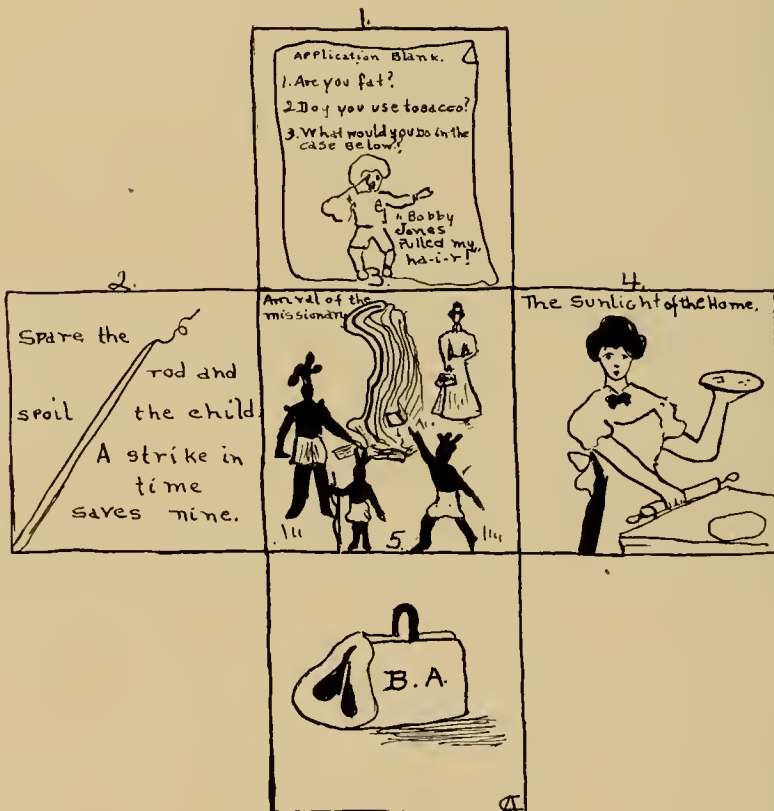 1.
Application Blank.
1. Are you fat?
2. Doy you use tobacco?
3. What would you do in the
case below?
"Bobby
Jones
Pulled my
ha-i-r!"
2.
Spare the
rod and
spoil the child
A strike in
time
saves nine.
3.
Arrival of the
missionary
4.
The Sunlight of the Home.
5.
B.A.